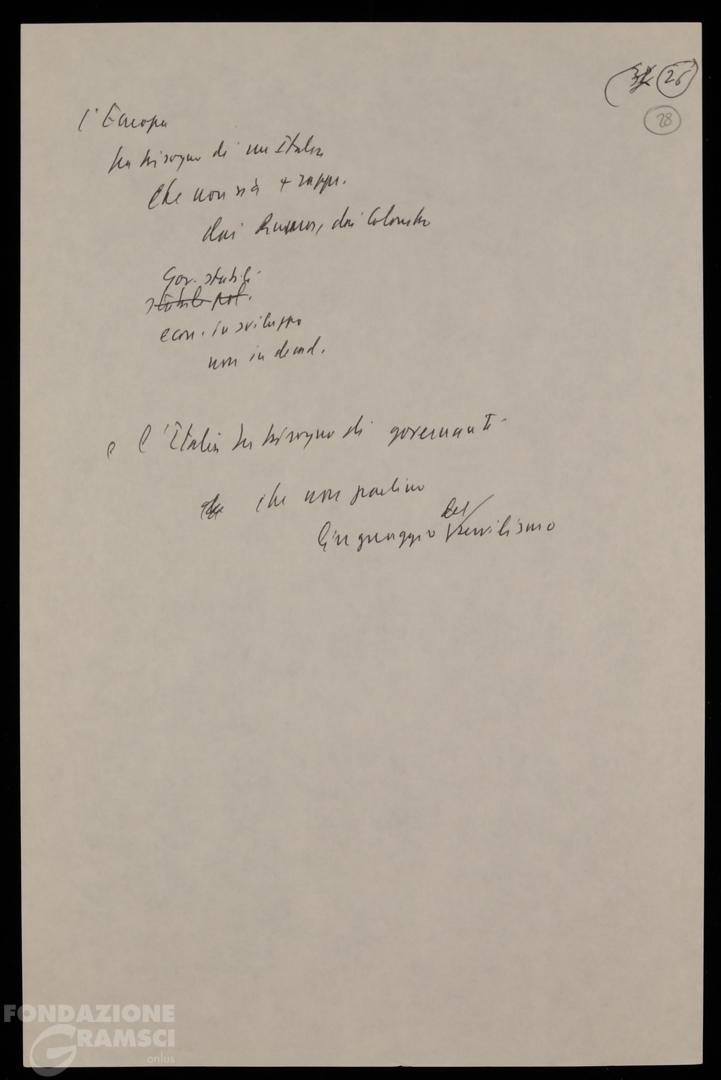 26
28
l'Europa
ha bisogno di un'Italia
che non sia + rappr.
dai Rumor, dai Colombo
Gov. stabili
stabile pol.
econ. in sviluppo
non in decad.
e l'Italia ha bisogno di governanti
che non parlino
linguaggio del servilismo
FONDAZIONE
GRAMSCI
onlus